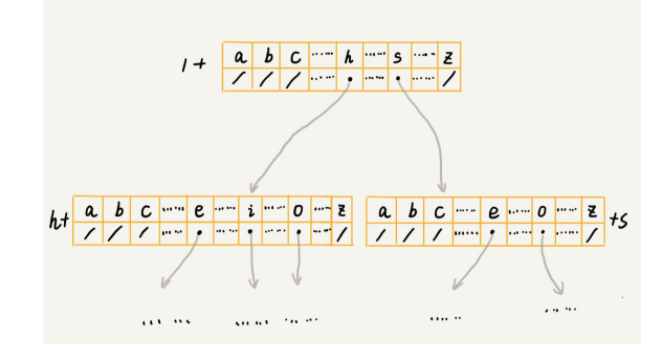 / +
a b c ...... h ...... s ...... z
/ / / ...... • ...... • ...... /
h+
a b c ...... e ...... i ...... o ...... z
/ / / ...... • ...... • ...... • ...... /
a b c ...... e ...... o ...... z
/ / / ...... • ...... • ...... /
+s
...... ...... ...... ...... ......